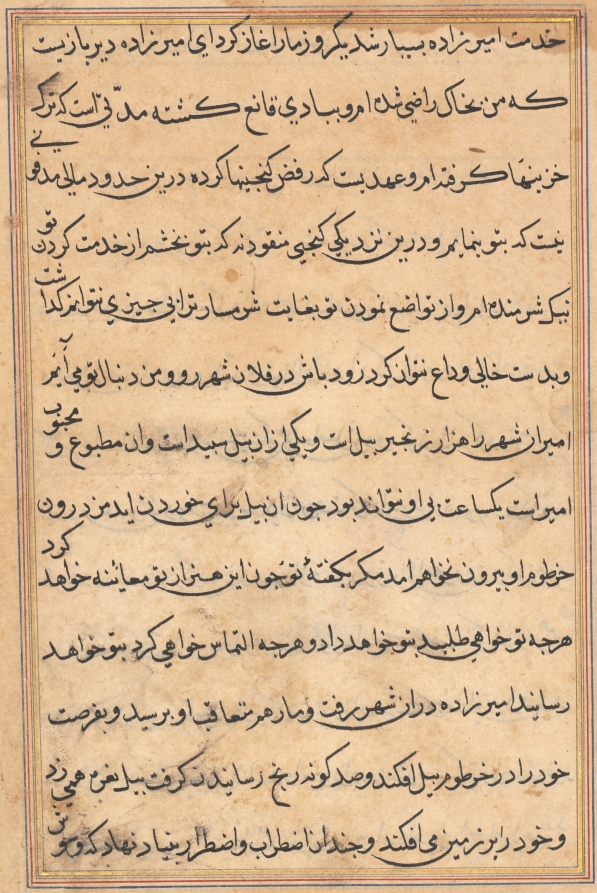 خدمت امیر زاده بسیار شد یکروز مار اغاز کرد ای امیر زاده دیر بازیست
که من بخاک راضی شده ام و ببادی قانع کشته مدّتی است که ترک
خزینها کرفته ام و عهدیست که رفض کنجینها کرده درین حدود مالی مدفونی
نیست که بتو بنمایم و درین نزدیکی کنجی منقود نه که بتو بخشم از خدمت کردن تو
نیک شرمنده ام و از تواضع نمودن تو بغایت شرمسار ترا بی چیزی نتوانم کذاشت
و بدست خالی وداع نتوان کرد زود باش در فلان شهر رو و من دنبال تو می آیم
امیر ان شهر را هزار زنجیر بیل است و یکی از ان بیل سبیداست وان مطبوع و محبوب
امیر است یکساعت بی او نتواند بود جون ان بیل برای خوردن اید من درون
خرطوم او بیرون نخواهم امد مکر بکفتهٔ تو جون این هنر از تو معائنه خواهد کرد
هرجه تو خواهی طلبید بتو خواهد داد و هرجه التماس خواهی کرد بتو خواهد
رسانید امیر زاده دران شهر رفت و مار هم متعاقب او برسید و بفرصت
خود را در خرطوم بیل افکند و صد کونه رنج رسانیدن کرفت بیل نعره همی زد
و خود را بر زمین می افکند و جندان اضطراب و اضطرار بنیاد نهاد که